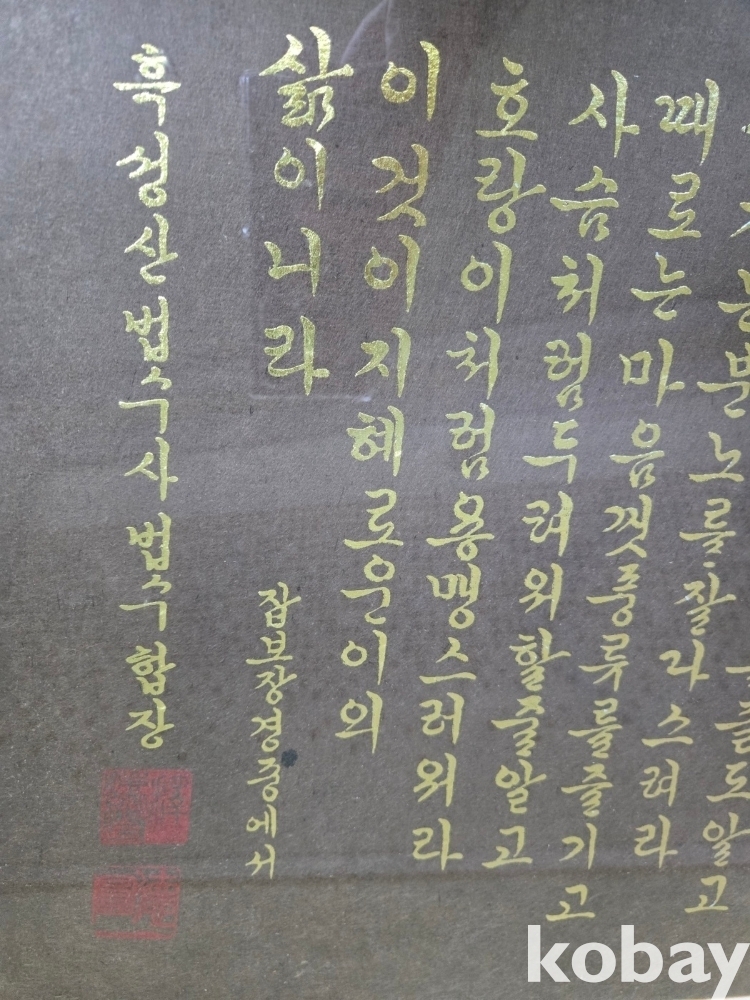 도알고
는분노를잘다스려라
때로는마음껏풍류를즐기고
사슴처럼두려워할줄알고
호랑이처럼용맹스러워라
이것이지혜로운이의
삶이니라
잡보장경중에서
흑성산법수사법수합장
kobay